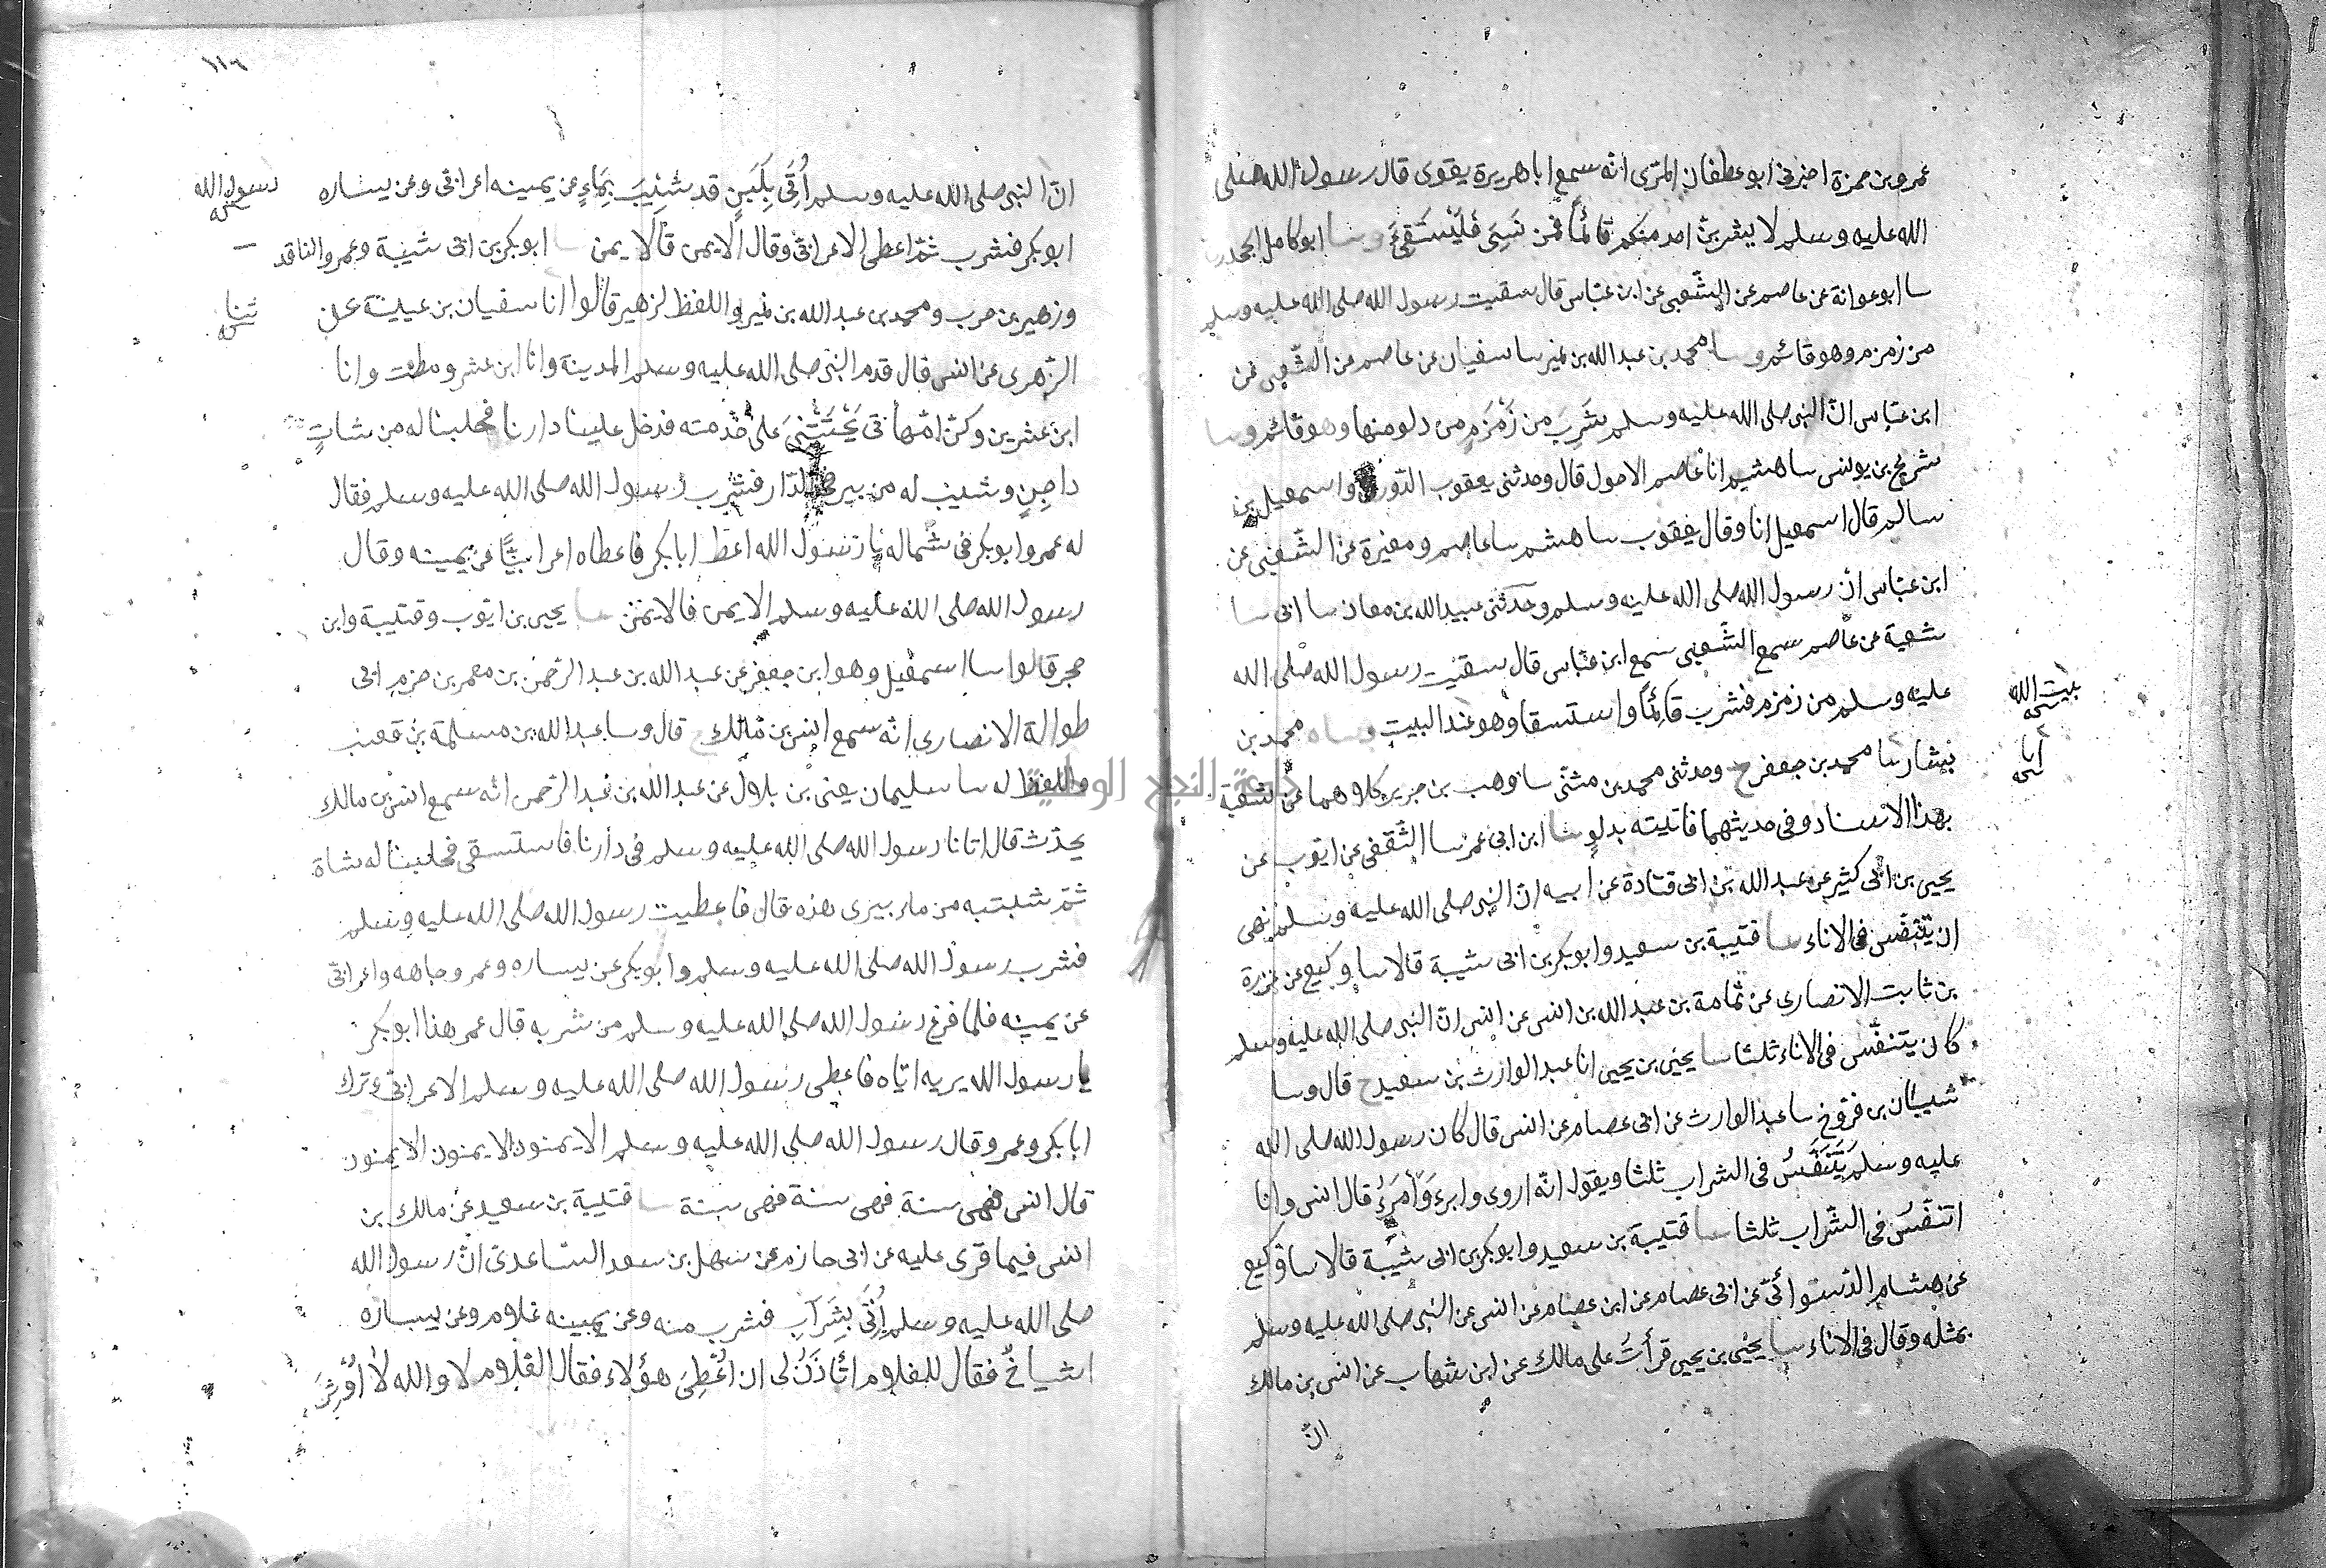 عمرو بن حمزة اخبرنى ابو عطفان المرّى انه سمع ابا هريرة يقول قال رسول الله صلى
الله عليه وسلم لا يشربنّ احد منكم قائمًا فمن نَسِىَ فَلْيَسْتَقِئَ وسا ابو كامل الجحدرى
سا ابو عوانة عن عاصم عن الشّعبى عن ابن عبّاس قال سقيت رسول الله صلى الله عليه وسلم
من زمزم وهو قائم وسا محمد بن عبد الله بن نمير سا سفيان عن عاصم عن الشّعبى عن
ابن عبّاس انّ النبى صلى الله عليه وسلم شَرِبَ من زَمْزَمٍ من دلو منها وهو قائم وسا
سريج بن يونس سا هشيم انا عاصم الاحول قال وحدثنى يعقوب الدّورقى واسمعيل بن
سالم قال اسمعيل انا وقال يعقوب سا هشيم سا عاصم ومغيرة عن الشّعبى عن
ابن عبّاس انّ رسول الله صلى الله عليه وسلم وحدّثنى عبيد الله بن معاذ سا ابى سا
شعبة عن عاصم سمع الشّعبى سمع ابن عبّاس قال سقيت رسول الله صلى الله
عليه وسلم من زمزم فشرب قائمًا واستسقا وهو عند البيت وساه محمد بن
بيت الله
بشار سا محمد بن جعفر ح وحدثنى محمد بن مثنّى سا وهب بن جرير كلاهما عن شعبة
بهذا الاسناد وفى حديثهما فاتيته بدلو سا ابن ابى عمر سا الثّقفى عن ايّوب عن
يحيى بن ابى كثير عن عبد الله بن ابى قتادة عن ابيه انّ النبى صلى الله عليه وسلم نهى
ان يتنفّس فى الاناء سا قتيبة بن سعيد وابو بكر بن ابى شيبة قالا سا وكيع عن عزرة
بن ثابت الانصارى عن ثمامة بن عبد الله بن انس عن انس انّ النبى صلى الله عليه وسلم
كان يتنفّس فى الاناء ثلثا سا يحيى بن يحيى انا عبد الوارث بن سعيد ح قال وسا
شيبان بن فرّوخ سا عبد الوارث عن ابى عصام عن انس قال كان رسول الله صلى الله
عليه وسلم يَتَنَفَّسُ فى الشراب ثلثا ويقول انّه اروى وابرء وَاَمْرَءُ قال انس وانا
اتنفّسُ فى الشّراب ثلثا سا قتيبة بن سعيد وابو بكر بن ابى شيبة قالا سا وكيع
عن هشام الدّستوائىّ عن ابى عصام عن ابن عصام عن انس عن النبى صلى الله عليه وسلم
بمثله وقال فى الاناء سا يحيى بن يحيى قرأتُ على مالك عن ابن شهاب عن انس بن مالك
انّ
١١٦
انّ النبى صلى الله عليه وسلم اُتِىَ بِلَبَنٍ قد شِيبَ بِمَاءٍ عن يمينه اعرابىّ وعن يساره
رسول الله
ابو بكر فشرب ثمّ اعطى الاعرابىّ وقال الايمن فالايمن سا ابو بكر بن ابى شيبة وعمرو الناقد
وزهير بن حرب ومحمد بن عبد الله بن نمير واللفظ لزهير قالوا انا سفيان بن عيينة عن
ثنا
الزّهرى عن انس قال قدم النبىّ صلى الله عليه وسلم المدينة وانا ابن عشر ومات وانا
ابن عشرين وكنّ امّهاتى يَحْثَثْنَنِى على خدمته فدخل علينا دارنا فحلبنا له من شاةٍ
داجِنٍ وشيب له من بير فى الدّار فشرب رسول الله صلى الله عليه وسلم فقال
له عمر وابو بكر فى شماله يا رسول الله اعط ابا بكر فاعطاه اعرابيًّا عن يمينه وقال
رسول الله صلى الله عليه وسلم الايمن فالايمن سا يحيى بن ايّوب وقتيبة وابن
حجر قالوا سا اسمعيل وهو ابن جعفر عن عبد الله بن عبد الرّحمن بن معمر بن حزم ابى
طوالة الانصارى انه سمع انس بن مالك ح قال وسا عبد الله بن مسلمة بن قعنب
واللفظ له سا سليمان يعنى بن بلال عن عبد الله بن عبد الرّحمن انه سمع انس بن مالك
يحدّث قال اتانا رسول الله صلى الله عليه وسلم فى دارنا فاستسقى فحلبنا له شاة
ثمّ شبته من ماء بيرى هذه قال فاعطيت رسول الله صلى الله عليه وسلم
فشرب رسول الله صلى الله عليه وسلم وابو بكر عن يساره وعمر وجاهه واعرابىّ
عن يمينه فلمّا فرغ رسول الله صلى الله عليه وسلم من شربه قال عمر هذا ابو بكر
يا رسول الله يريه ايّاه فاعطى رسول الله صلى الله عليه وسلم الاعرابىّ وترك
ابا بكر وعمر وقال رسول الله صلى الله عليه وسلم الايمنون الايمنون الايمنون
قال انس فهى سنة فهى سنة فهى سنة سا قتيبة بن سعيد عن مالك بن
انس فيما قرى عليه عن ابى حازم عن سهل بن سعد السّاعدىّ انّ رسول الله
صلى الله عليه وسلم اُتِىَ بِشَرَابٍ فشرب منه وعن يمينه غلام وعن يساره
اشياخٌ فقال للغلام اتأذَنُ لى ان اُعْطِىَ هؤلاء فقال الغلام لا والله لا اُوثِرُ
جامعة النجاح الوطنية